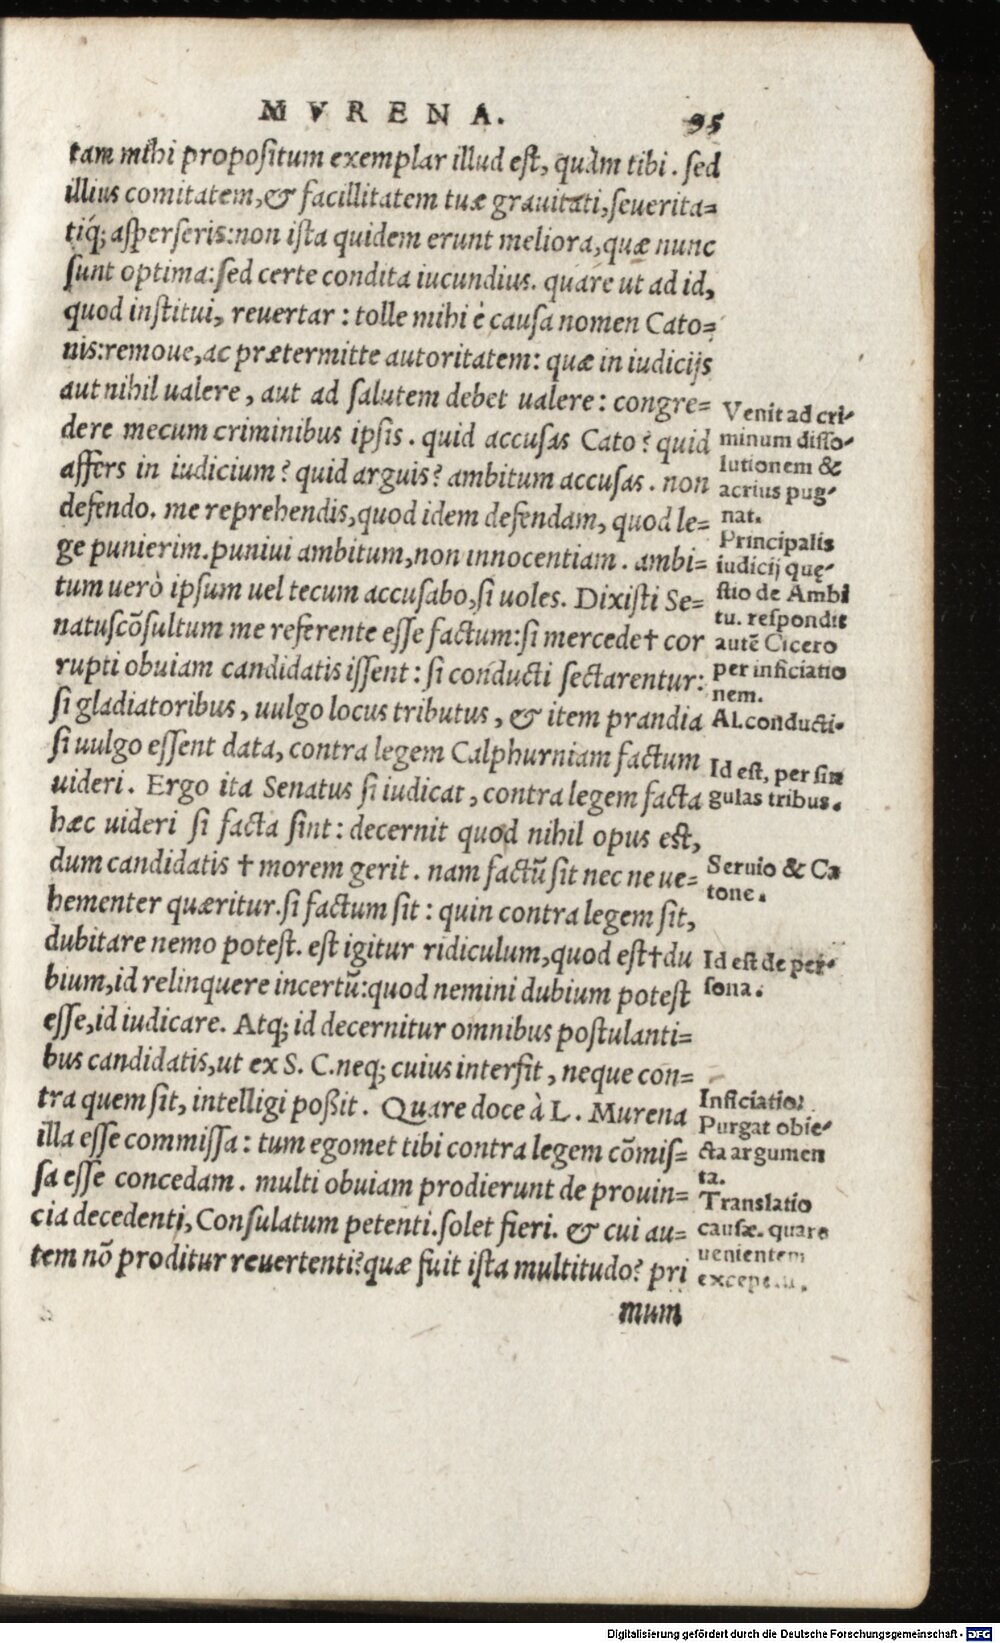 MVRENA.
95
tam mihi propositum exemplar illud est, quàm tibi. sed
illius comitatem, & facillitatem tuæ grauitati, seuerita=
tíq; asperseris: non ista quidem erunt meliora, quæ nunc
sunt optima: sed certe condita iucundius. quare ut ad id,
quod institui, reuertar: tolle mihi è causa nomen Cato=
nis: remoue, ac prætermitte autoritatem: quæ in iudicijs
aut nihil ualere, aut ad salutem debet ualere: congre=
dere mecum criminibus ipsis. quid accusas Cato? quid
affers in iudicium? quid arguis? ambitum accusas. non
defendo. me reprehendis, quod idem defendam, quod le=
ge punierim. puniui ambitum, non innocentiam. ambi=
tum uerò ipsum uel tecum accusabo, si uoles. Dixisti Se=
natuscõsultum me referente esse factum: si mercede† cor
rupti obuiam candidatis issent: si conducti sectarentur:
si gladiatoribus, uulgo locus tributus, & item prandia
si uulgo essent data, contra legem Calphurniam factum
uideri. Ergo ita Senatus si iudicat, contra legem facta
hæc uideri si facta sint: decernit quod nihil opus est,
dum candidatis † morem gerit. nam factũ sit nec ne ue=
hementer quæritur. si factum sit: quin contra legem sit,
dubitare nemo potest. est igitur ridiculum, quod est† du
bium, id relinquere incertũ: quod nemini dubium potest
esse, id iudicare. Atq; id decernitur omnibus postulanti=
bus candidatis, ut ex S. C. neq; cuius intersit, neque con=
tra quem sit, intelligi poßit. Quare doce à L. Murena
illa esse commissa: tum egomet tibi contra legem cõmis=
sa esse concedam. multi obuiam prodierunt de prouin=
cia decedenti, Consulatum petenti. solet fieri. & cui au=
tem nõ proditur reuertenti? quæ fuit ista multitudo? pri
mum
Venit ad cri-
minum disso-
lutionem &
acrius pug-
nat.
Principalis
iudicij quę-
stio de Ambi
tu. respondit
autẽ Cicero
per inficiatio
nem.
Al. conducti.
Id est, per sin
gulas tribus.
Seruio & Ca
tone.
Id est de per-
sona.
Inficiatio:
Purgat obie-
cta argumen
ta.
Translatio
causæ. quare
uenientem